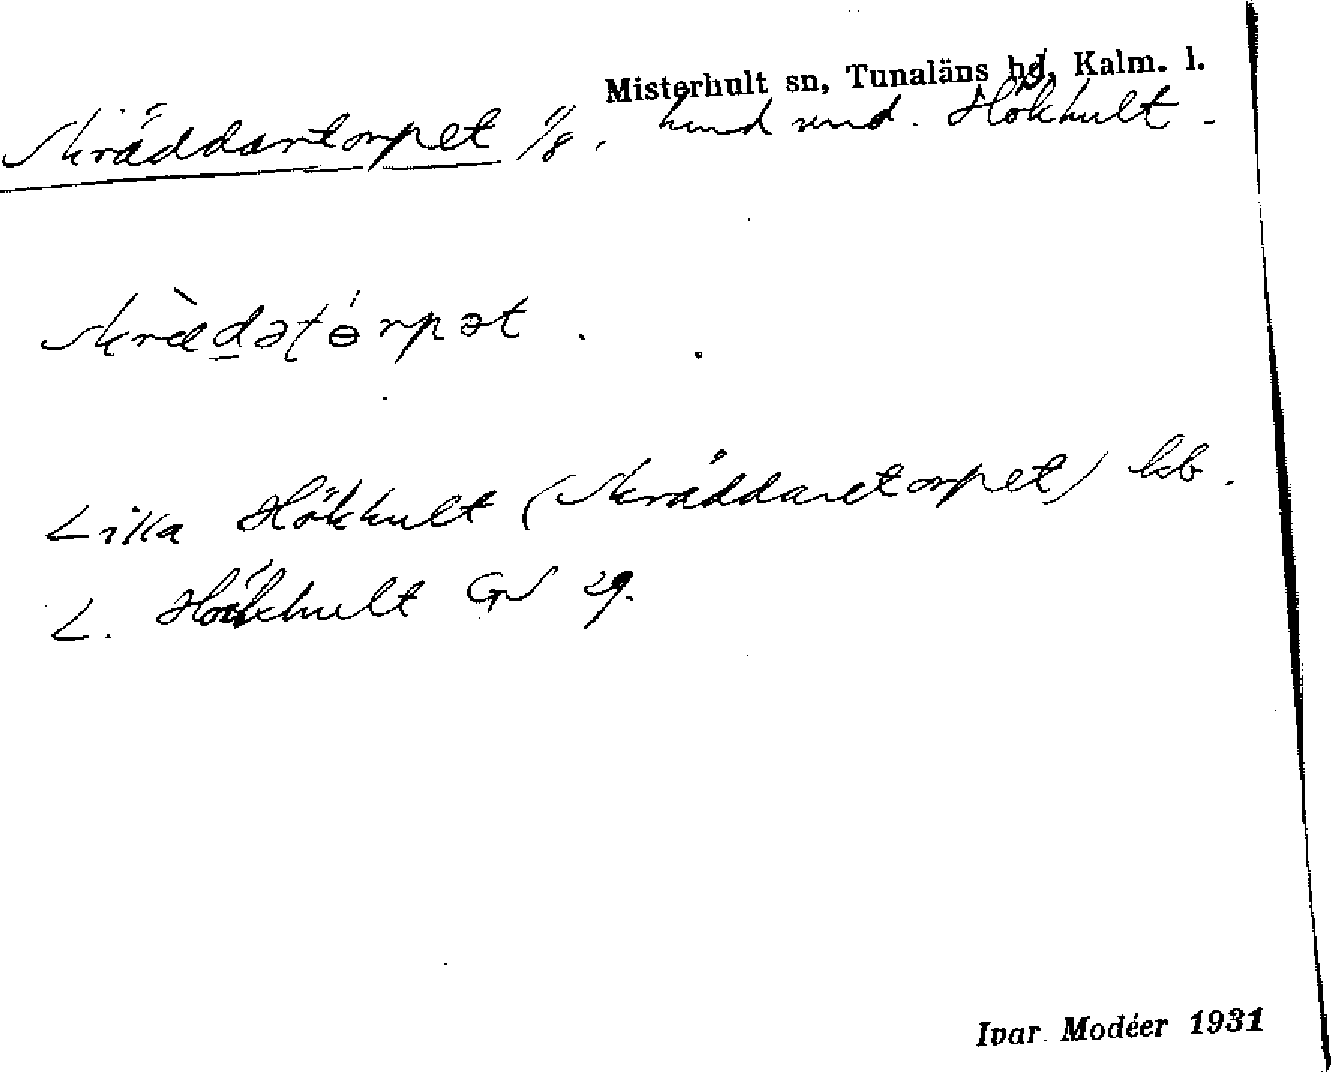 Misterhult sn, Tunaläns hd, Kalm. l.
Skräddartorpet 1/8, hmd und. Hökhult.
Skrädatɵ́rpət.
Lilla Hökhult (Skräddaretorpet) kb.
L. Hökhult GV 29.
Ivar Modéer 1931